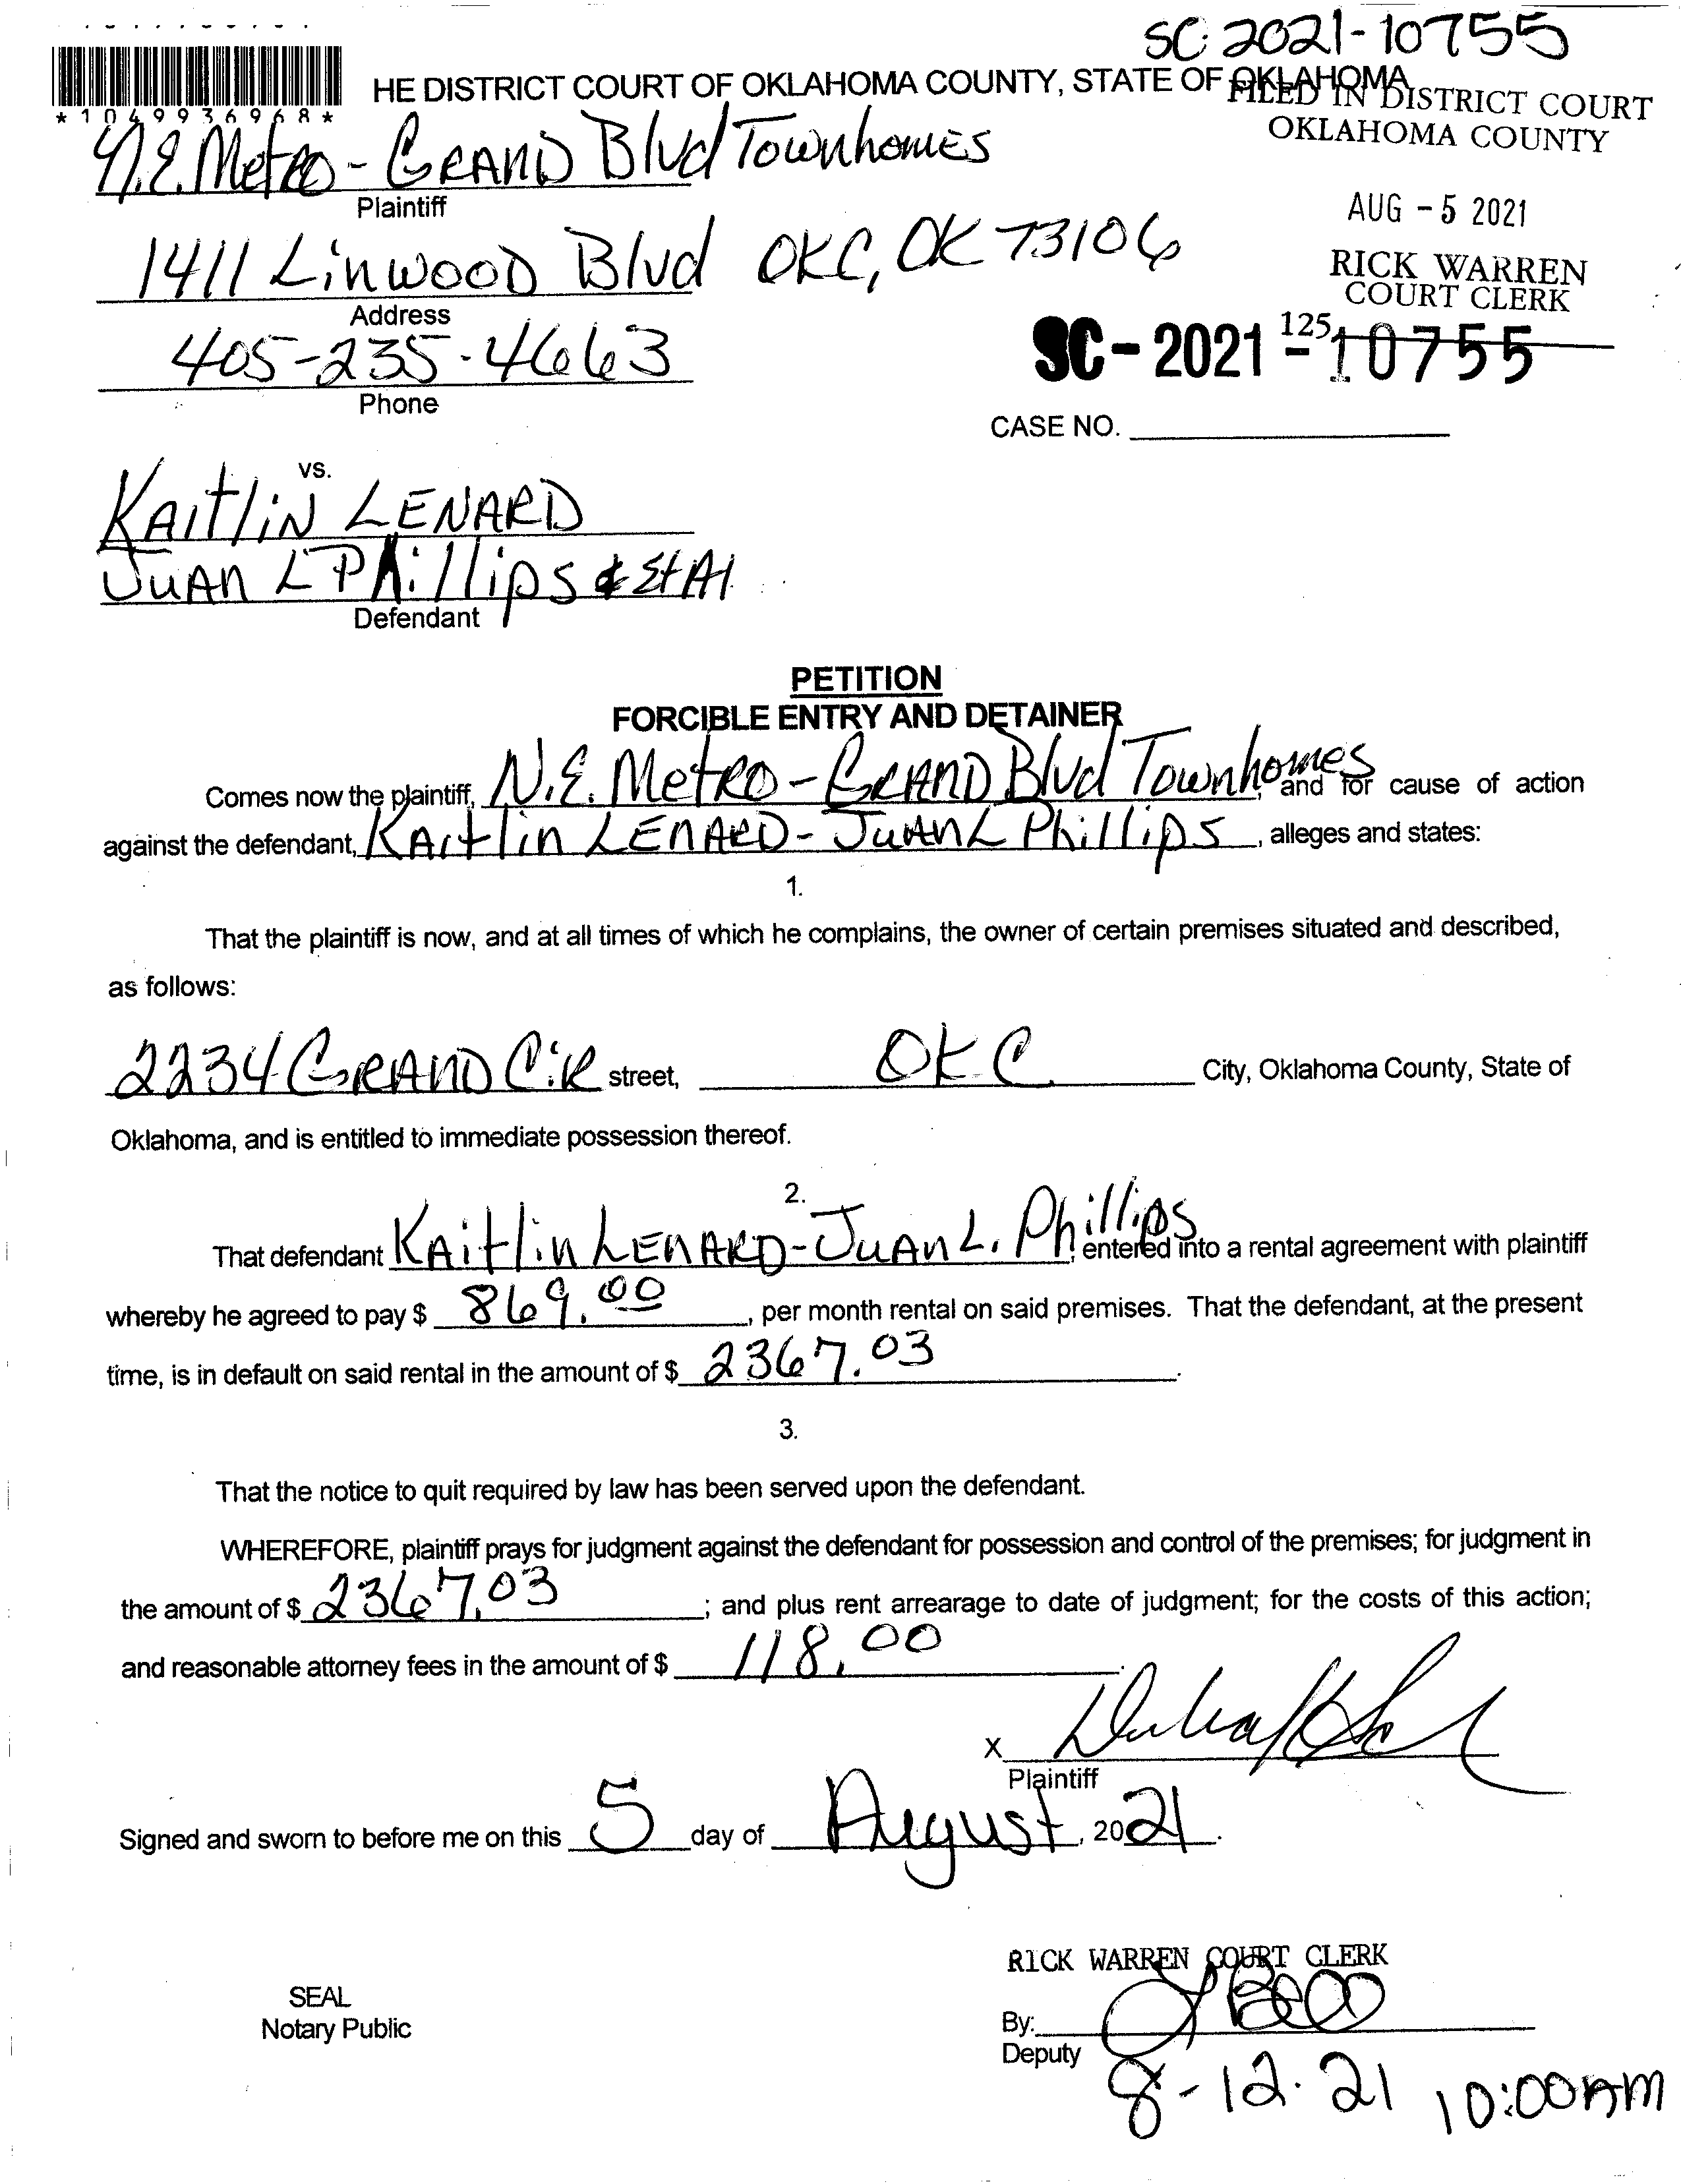 SC-2021-10755
HE DISTRICT COURT OF OKLAHOMA COUNTY, STATE OF OKLAHOMA
FILED IN DISTRICT COURT
OKLAHOMA COUNTY
*1049936968*
N.E. Metro - GRAND Blvd Townhomes
Plaintiff
AUG - 5 2021
1411 Linwood Blvd OKC, OK 73106
Address
RICK WARREN
COURT CLERK
125
405-235-4663
Phone
SC - 2021 - 10755
CASE NO.
vs.
KAITLIN LENARD
JUAN L PHillips & Et Al
Defendant
PETITION
FORCIBLE ENTRY AND DETAINER
Comes now the plaintiff, N.E. Metro - GRAND Blvd Townhomes, and for cause of action
against the defendant, KAitlin LENARD - JUAN L Phillips, alleges and states:
1.
That the plaintiff is now, and at all times of which he complains, the owner of certain premises situated and described,
as follows:
2234 GRAND CiR street, OKC City, Oklahoma County, State of
Oklahoma, and is entitled to immediate possession thereof.
2.
That defendant KAitlin LENARD - JUAN L. Phillips, entered into a rental agreement with plaintiff
whereby he agreed to pay $ 869.00, per month rental on said premises. That the defendant, at the present
time, is in default on said rental in the amount of $ 2367.03.
3.
That the notice to quit required by law has been served upon the defendant.
WHEREFORE, plaintiff prays for judgment against the defendant for possession and control of the premises; for judgment in
the amount of $ 2367.03; and plus rent arrearage to date of judgment; for the costs of this action;
and reasonable attorney fees in the amount of $ 118.00.
X
Plaintiff
Signed and sworn to before me on this 5 day of August, 2021.
RICK WARREN COURT CLERK
SEAL
Notary Public
By:
Deputy
8-12-21 10:00AM